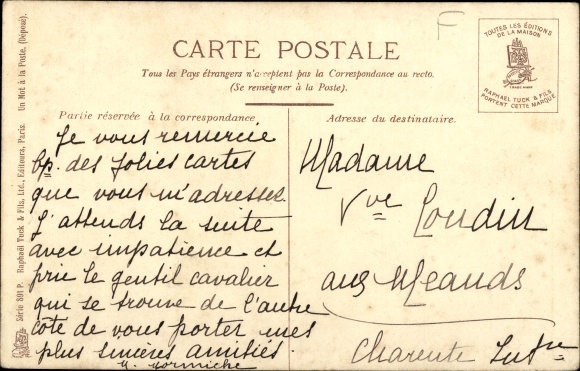 TOUTES LES ÉDITIONS
DE LA MAISON
TRADE MARK
RAPHAEL TUCK & FILS
PORTENT CETTE MARQUE
CARTE POSTALE
Tous les Pays étrangers n'acceptent pas la Correspondance au recto.
(Se renseigner à la Poste).
Partie réservée à la correspondance
Je vous remercie
bp. des jolies cartes
que vous m'adressez.
J'attends la suite
avec impatience et
prie le gentil cavalier
qui se trouve de l'autre
côté de vous porter mes
plus sincères amitiés.
Adresse du destinataire.
Madame
Vve Loudin
aux Meands
Charente Infre
Série 891 P. Raphaël Tuck & Fils, Ltd., Editeurs, Paris. Un Mot à la Poste. (Déposé).
F